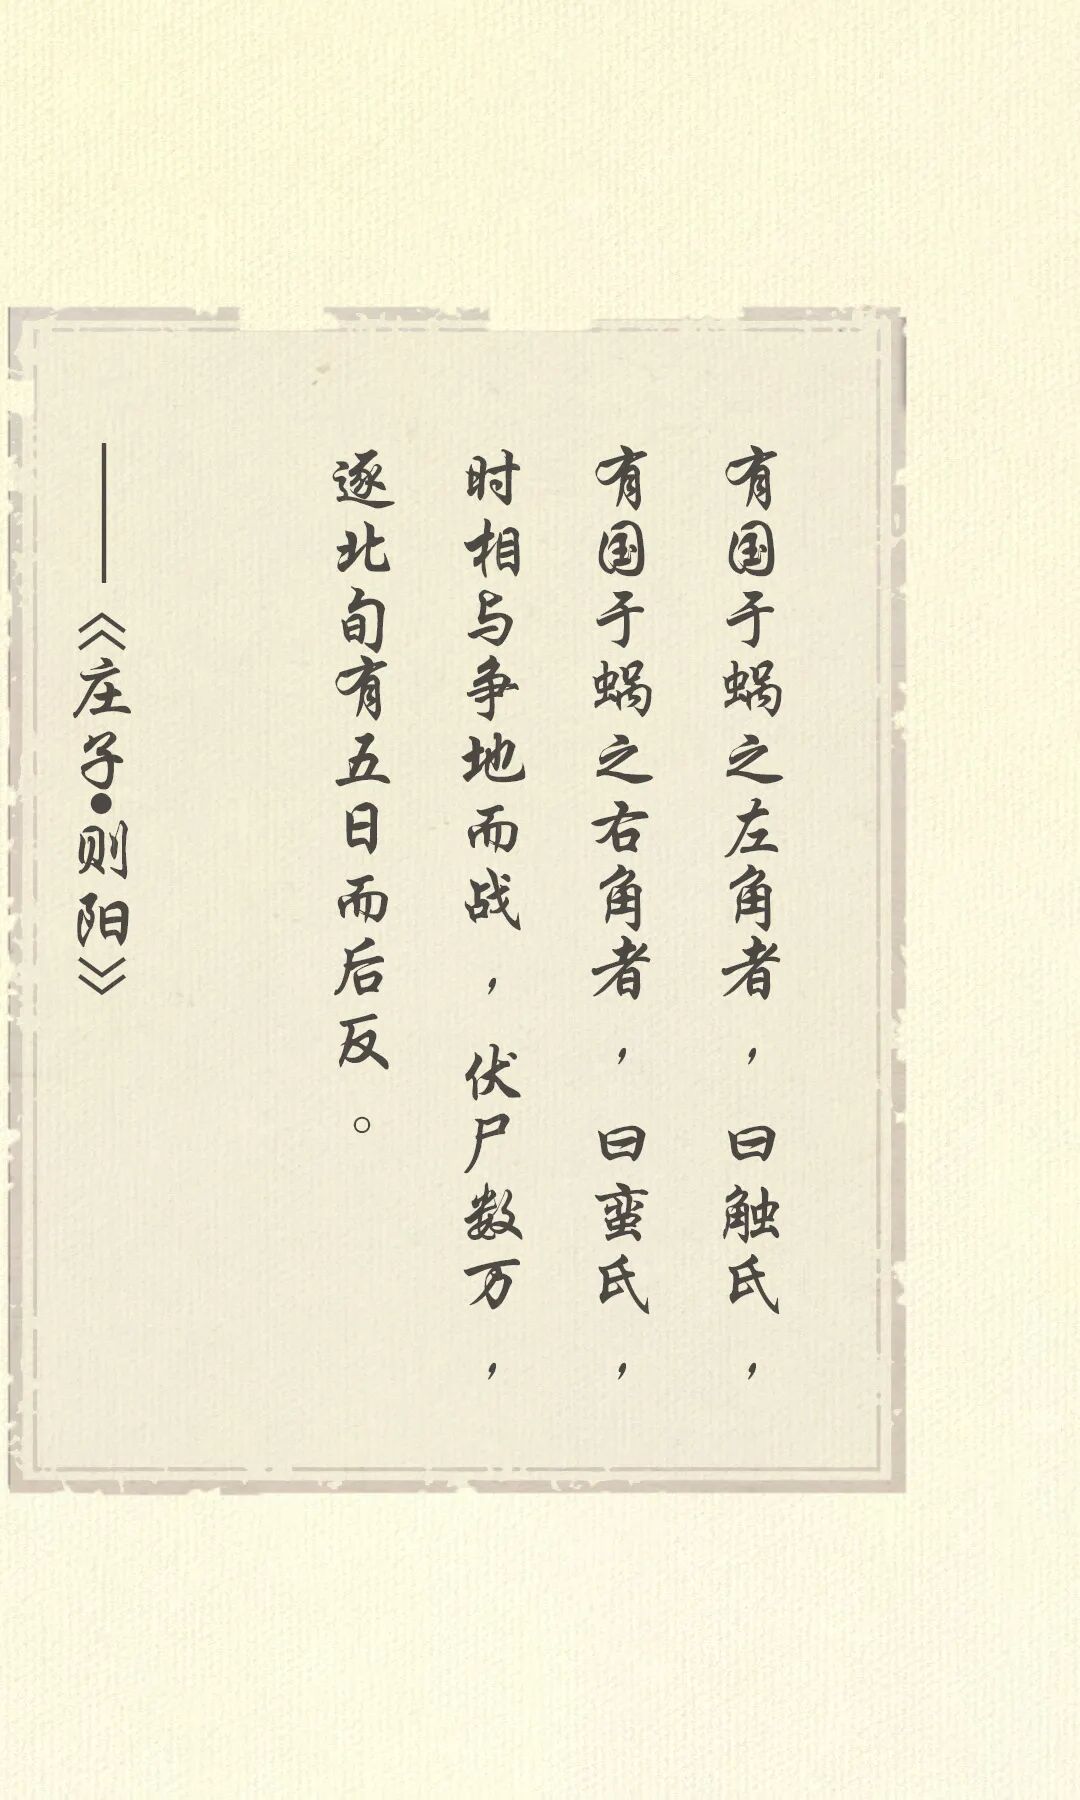 有国于蜗之左角者，曰触氏，
有国于蜗之右角者，曰蛮氏，
时相与争地而战，伏尸数万，
逐北旬有五日而后反。
——《庄子•则阳》